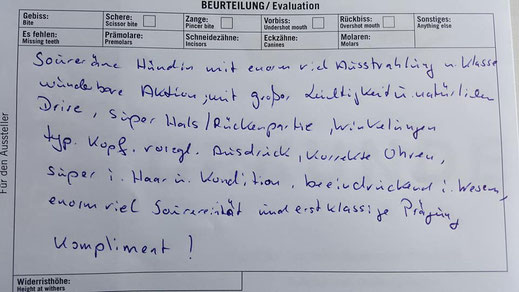 BEURTEILUNG / Evaluation
Gebiss: Schere: Zange: Vorbiss: Rückbiss: Sonstiges:
Bite Scissor bite Pincer bite Undershot mouth Overshot mouth Anything else
Es fehlen: Prämolare: Schneidezähne: Eckzähne: Molaren:
Missing teeth Premolars Incisors Canines Molars
Für den Aussteller
Souveräne Hündin mit enorm viel Ausstrahlung u. Klasse
wunderbare Aktion, mit großer Leichtigkeit u. natürlichem
Drive, super Hals/Rückenpartie, Winkelungen
typ. Kopf, vorzgl. Ausdruck, korrekte Ohren,
super i. Haar u. Kondition, beeindruckend i. Wesen,
enorm viel Souveränität und erstklassige Prägung
Kompliment !
Widerristhöhe:
Height at withers